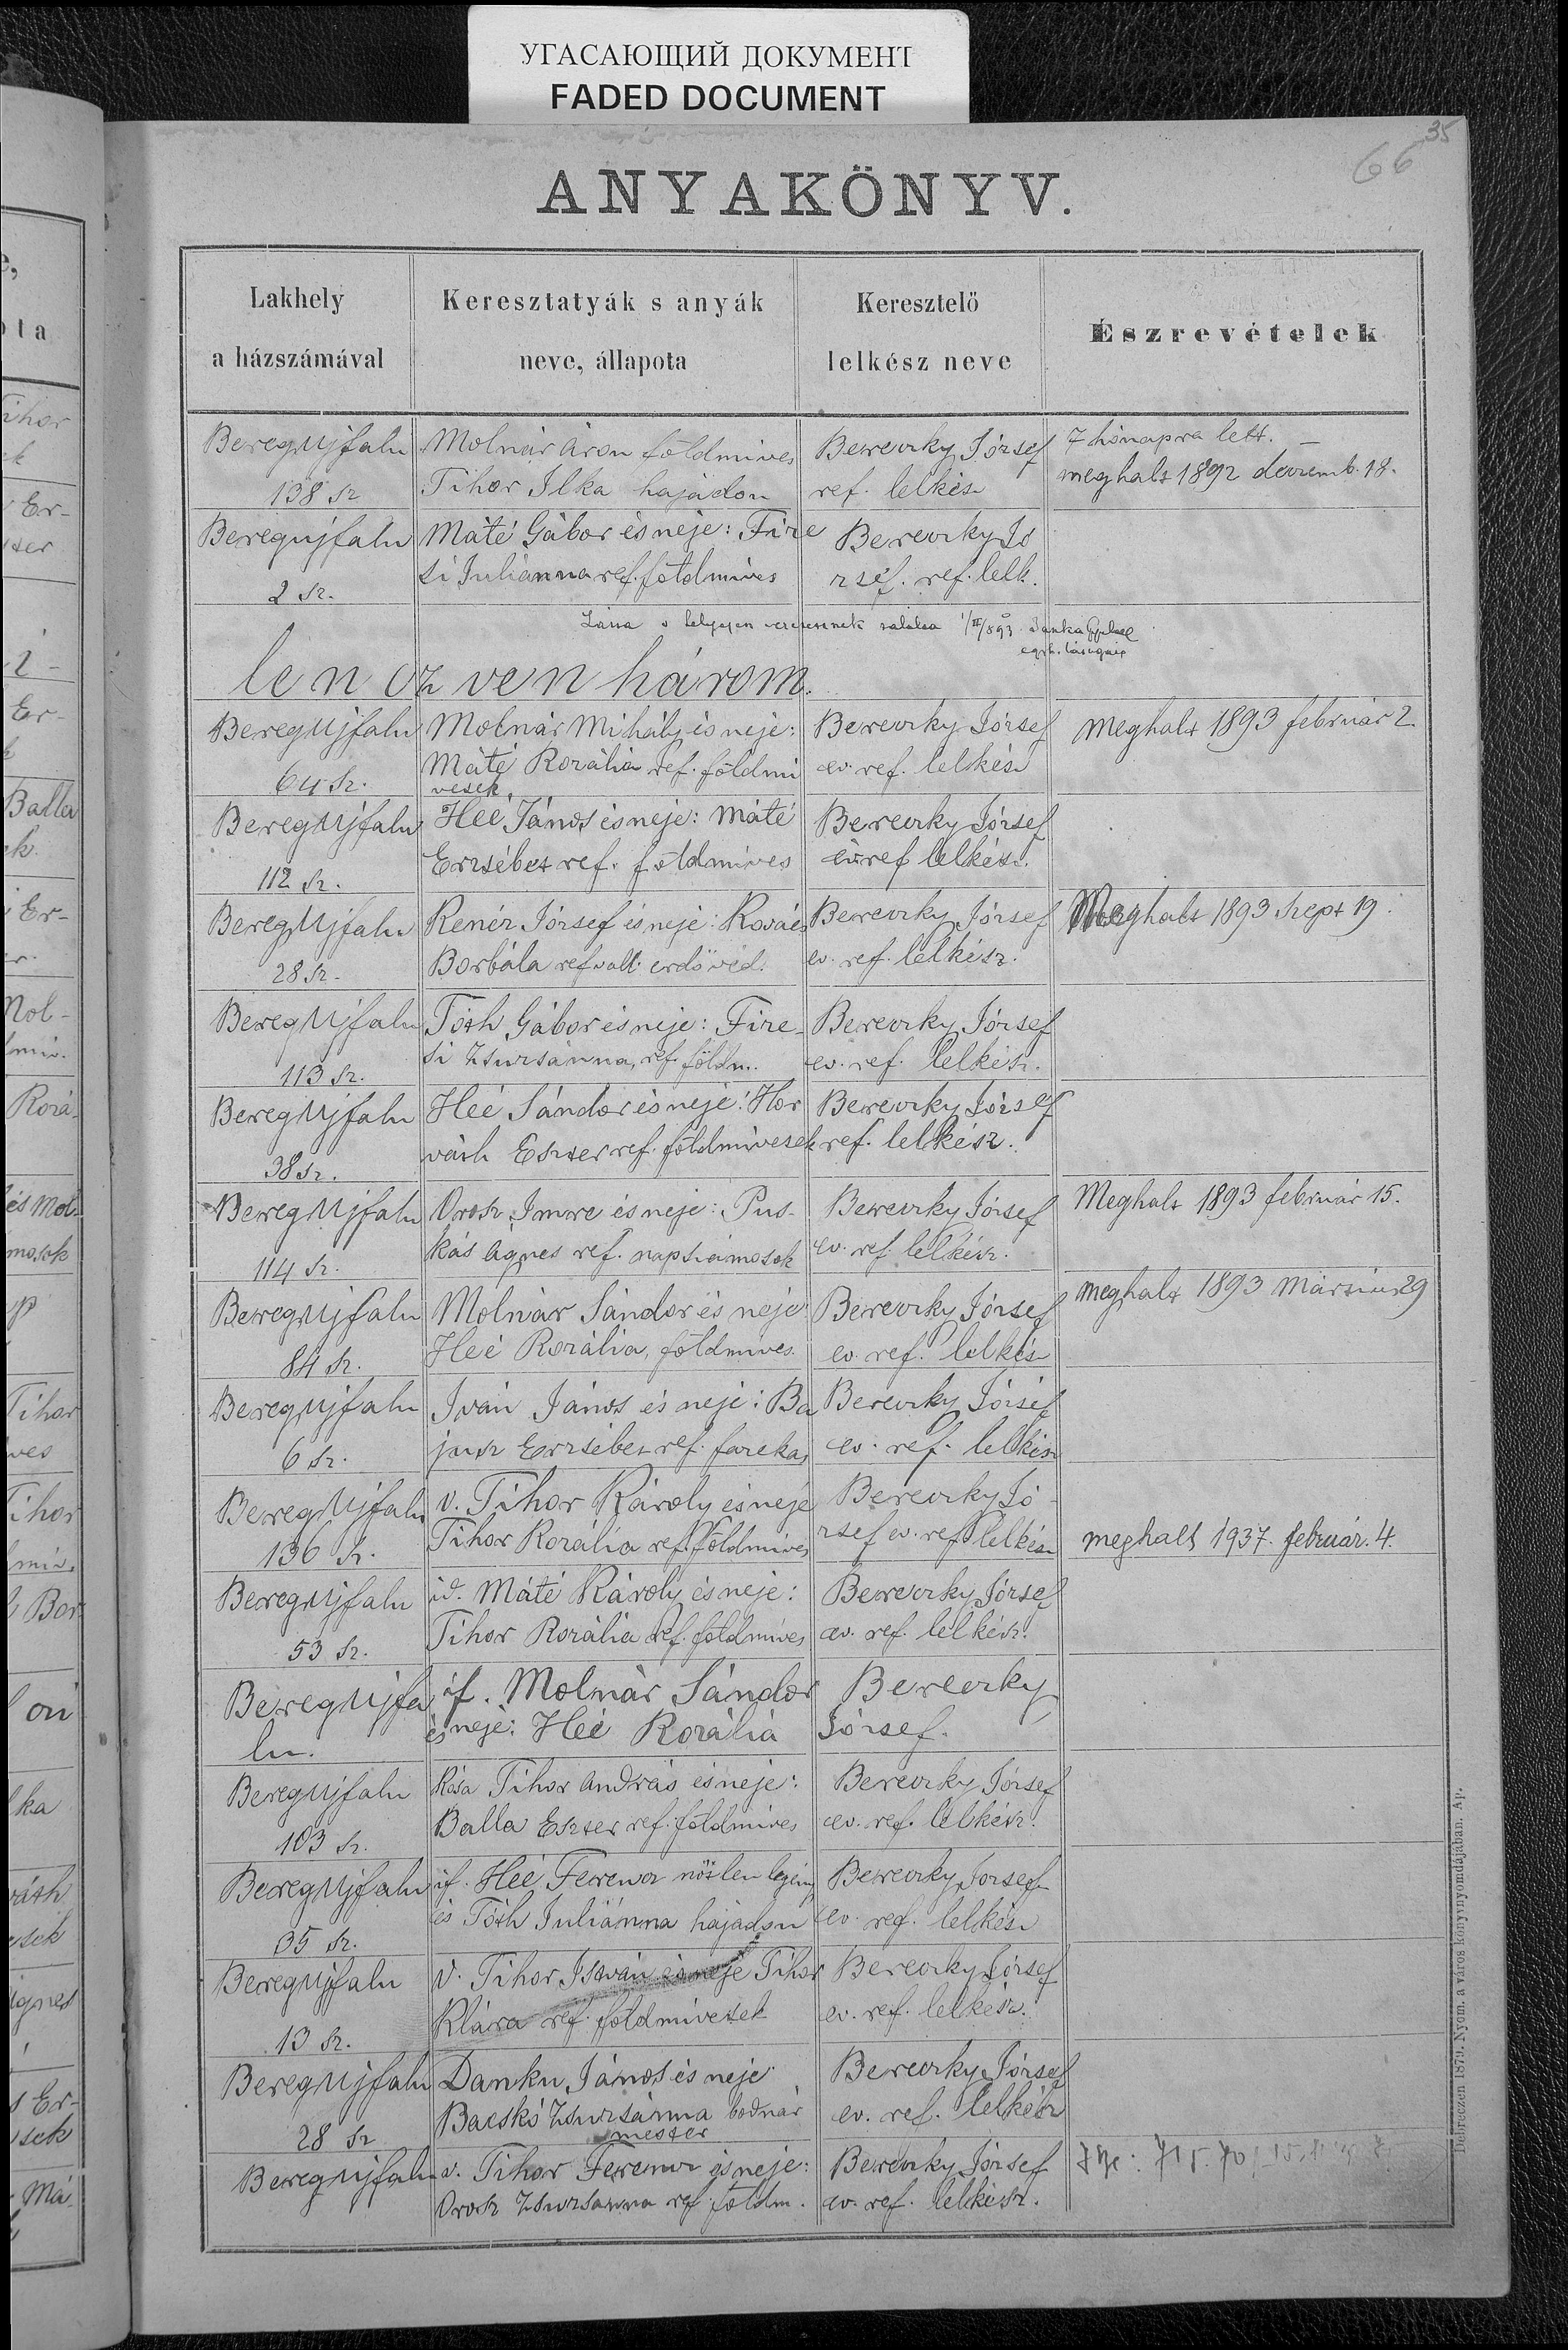 УГАСАЮЩИЙ ДОКУМЕНТ
FADED DOCUMENT
35
66
ANYAKÖNYV.
Lakhely
a házszámával
Keresztatyák s anyák
neve, állapota
Keresztelö
lelkész neve
Észrevételek
BeregUjfalu
138 sz
Molnár Áron földmives
Tihor Ilka hajadon
Bereczky József
ref. lelkész
7 hónapra lett. –
meghalt 1892 deczemb. 18.
Beregujfalu
2 sz.
Máté Gábor és neje: Füze
si Juliánna ref. földmives
Bereczky Jó
zsef. ref. lelk.
Lánka Gyula
lenczven három.
BeregUjfalu
64 sz.
Molnár Mihály és neje:
Máté Rozália ref. földmi
vesek.
Bereczky József
ev. ref. lelkész
Meghalt 1893 február 2.
BeregUjfalu
112 sz.
Héé János és neje: Máté
Erzsébet ref. földmives
Bereczky József
ev ref lelkész.
BeregUjfalu
28 sz.
Renér József és neje: Kovács
Borbála ref vall. erdövéd.
Bereczky József
ev. ref. lelkész.
Meghalt 1893 Szept 19.
BeregUjfalu
113 sz.
Tóth Gábor és neje: Füze-
si Zsuzsánna, ref. földm.
Bereczky József
ev. ref. lelkész.
BeregUjfalu
38 sz.
Héé Sándor és neje: Hor
váth Eszter ref. földmivesek
Bereczky József
ref. lelkész.
BeregUjfalu
114 sz.
Orosz Imre és neje: Pus-
kás Ágnes ref. napszámosok
Bereczky József
ev. ref. lelkész.
Meghalt 1893 február 15.
BeregUjfalu
84 sz.
Molnár Sándor és neje:
Héé Rozália, földmives.
Bereczky József
ev. ref. lelkész
meghalt 1893 Márczius 29
BeregUjfalu
6 sz.
Iván János és neje: Ba
jusz Erzsébet ref.
Bereczky József
ev. ref. lelkész
BeregUjfalu
136 sz.
v. Tihor Károly és neje
Tihor Rozália ref. földmives
Bereczky Jó-
zsef ev. ref. lelkész
meghalt 1937. február. 4.
BeregUjfalu
53 sz.
id. Máté Károly és neje:
Tihor Rozália ref. földmives
Bereczky József
ev. ref. lelkész.
BeregUjfa
lu.
if. Molnár Sándor
és neje: Héé Rozália
Bereczky
József.
BeregUjfalu
103 sz.
Kósa Tihor András és neje:
Balla Eszter ref. földmives
Bereczky József
ev. ref. lelkész.
BeregUjfalu
35 sz.
if. Héé Ferencz nötlen legény
és Tóth Juliánna hajadon
Bereczky József
ev. ref. lelkész
BeregUjfalu
13 sz.
v. Tihor István és neje Tihor
Klára ref. földmivesek
Bereczky József
ev. ref. lelkész.
BeregUjfalu
28 sz
Danku János és neje
Bacskó Zsuzsánna bodnár
mester
Bereczky József
ev. ref. lelkész
BeregUjfalu
v. Tihor Ferencz és neje:
Orosz Zsuzsanna ref. földm.
Bereczky József
ev. ref. lelkész.
Debreczen 1879. Nyom. a város könyvnyomdájában. Ap.